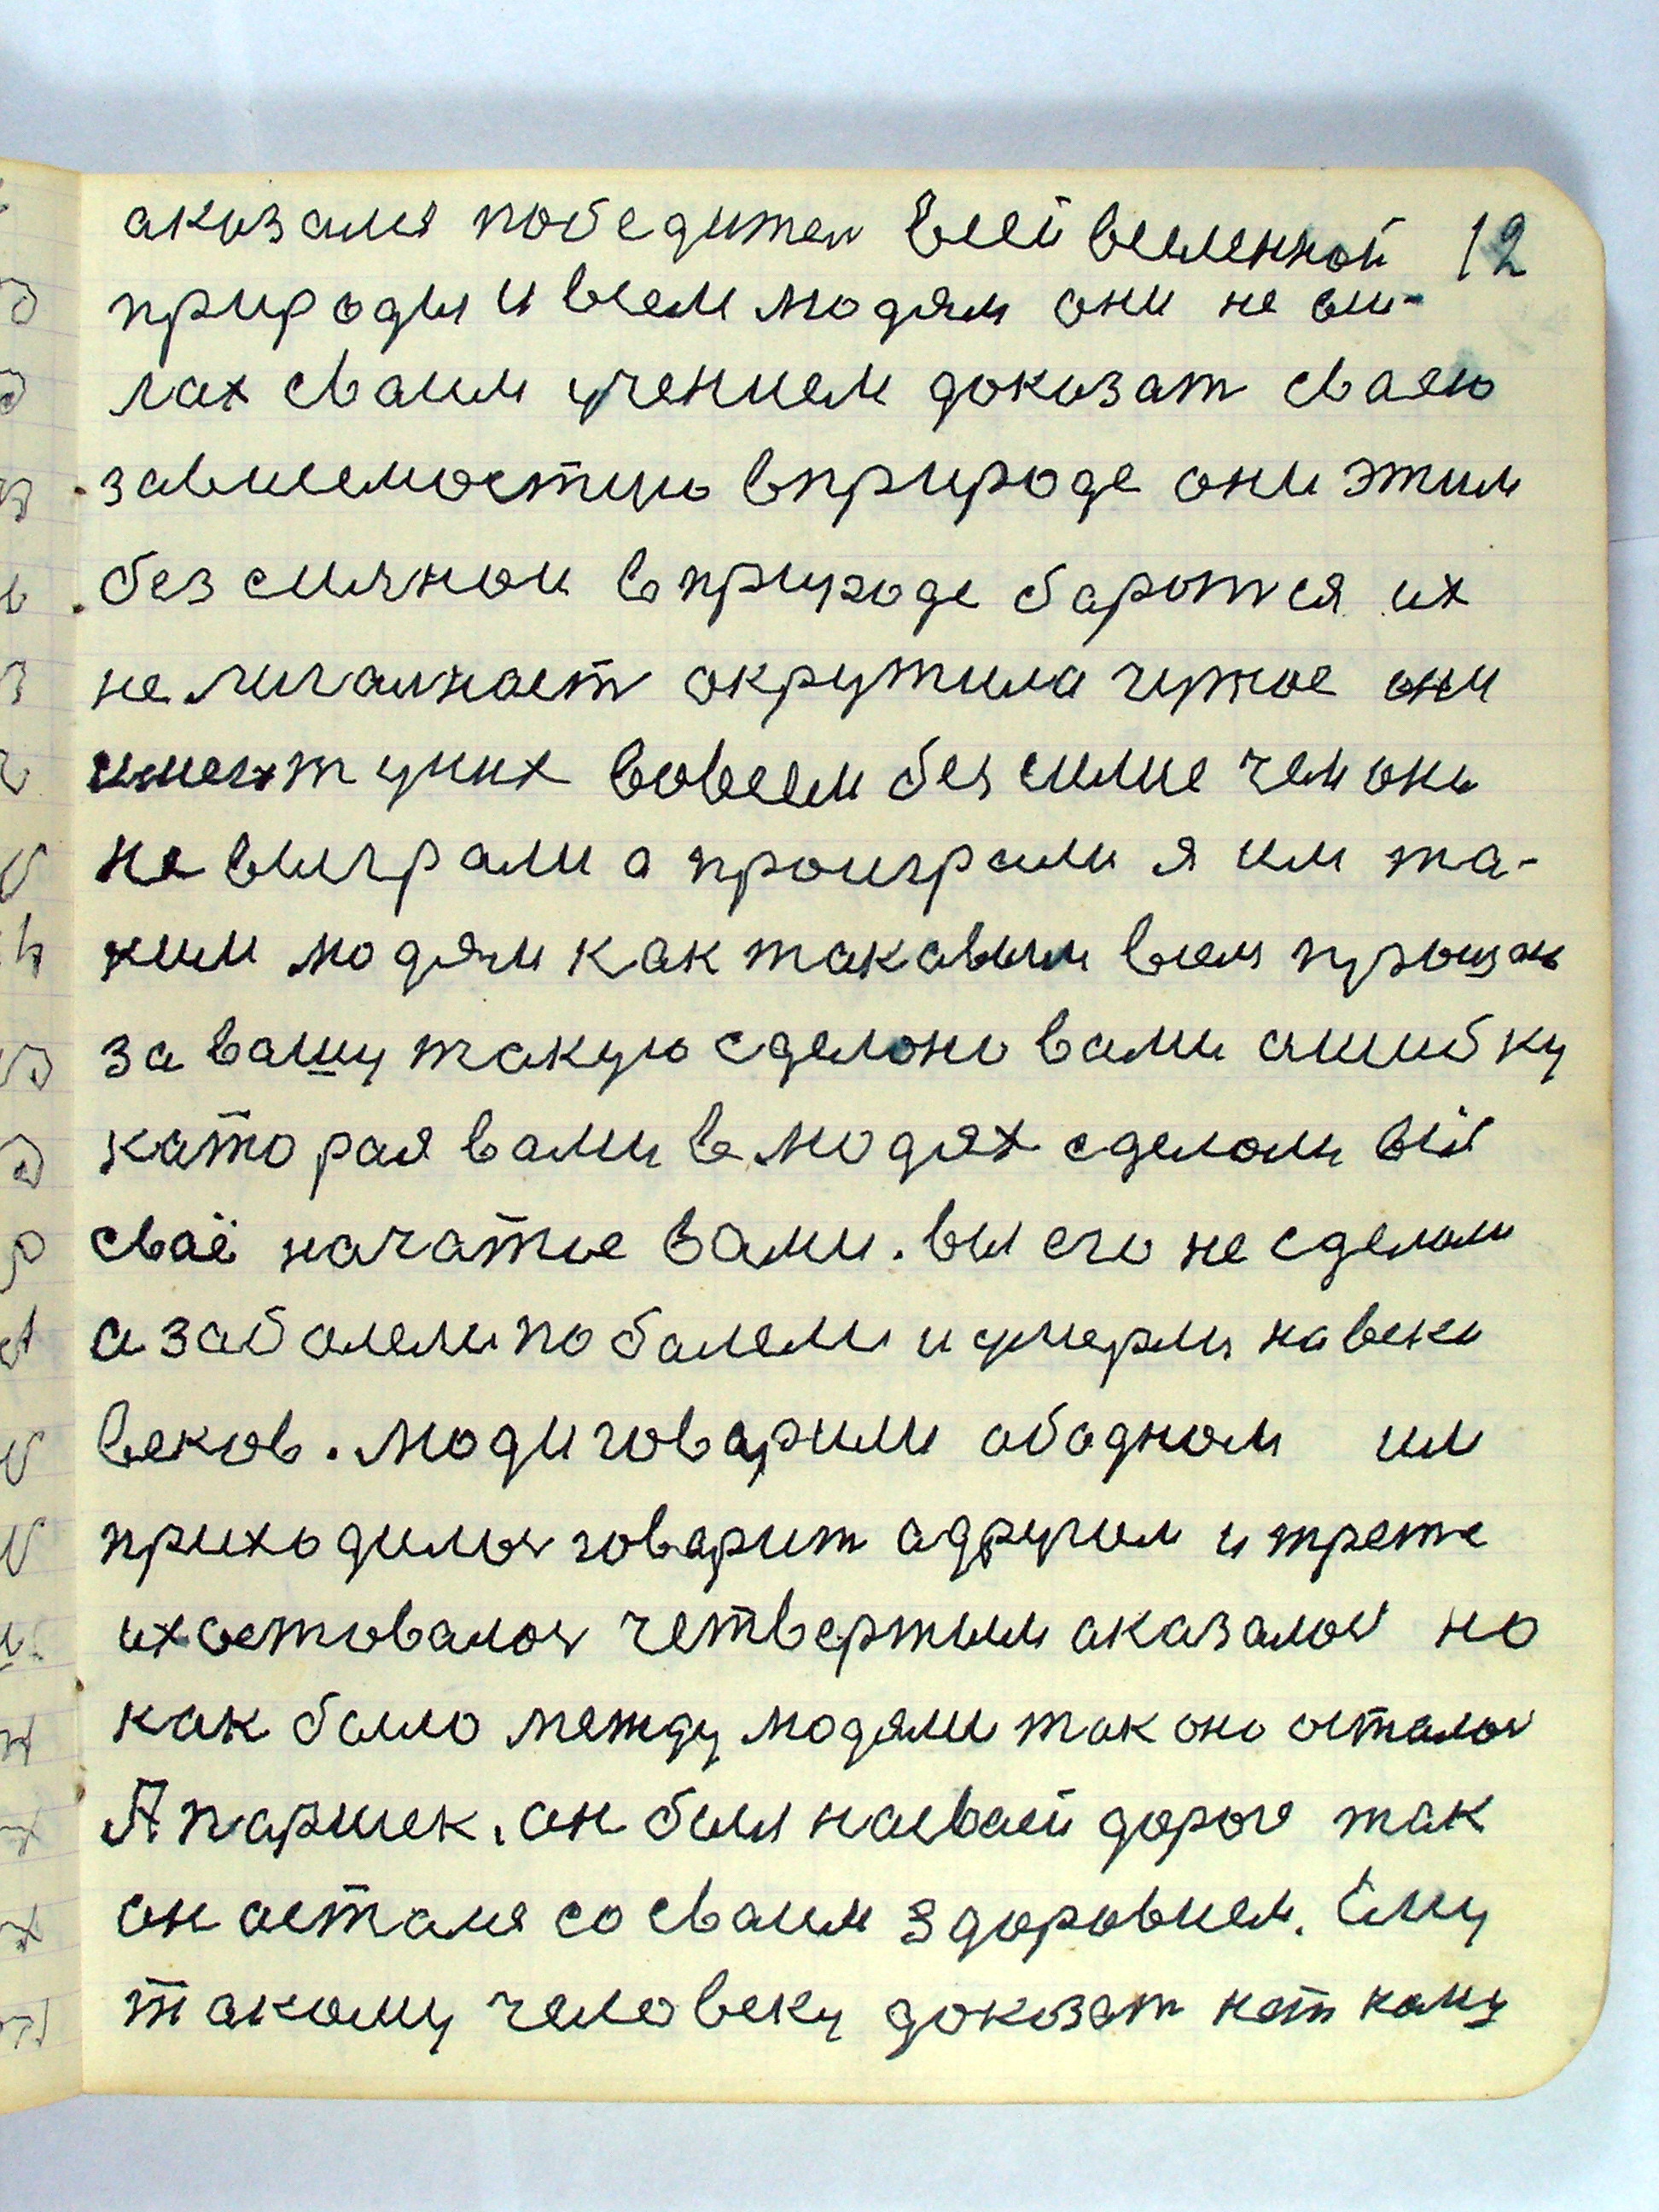 аказался победител Всей вселенной 12
природы и всем людям они не си-
лах сваим учением доказат сваею
зависемостию вприроде они этим
без смяном вприроде барются их
не лигалност окружила чужое они
имеют уних вовсем без силие чем они
не выграли а проиграли я им та-
ким людям как такавым всем прощаю
за вашу такую сделоно вами ашибку
каторая вами в людях сделоли вы
сваё начатие вами. вы его не сделали
а заболели поболели и умерли на веки
веков. люди говарили ободном им
приходилось говарит одругом и трете
их оставалось четвертым аказалось но
как было между людями так оно осталось
А паршек. он был насваей дороге так
он астался со сваим здоровием. Ему
такому человеку доказат нет кому